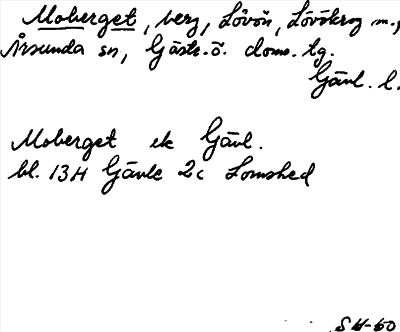 Moberget, berg, Lövön, Lövåkrog m.,
Årsunda sn, Gästr.ö. doms. tg.
Gävl. l.
Moberget ek Gävl.
bl. 13H Gävle 2c Lomshed
SH-60